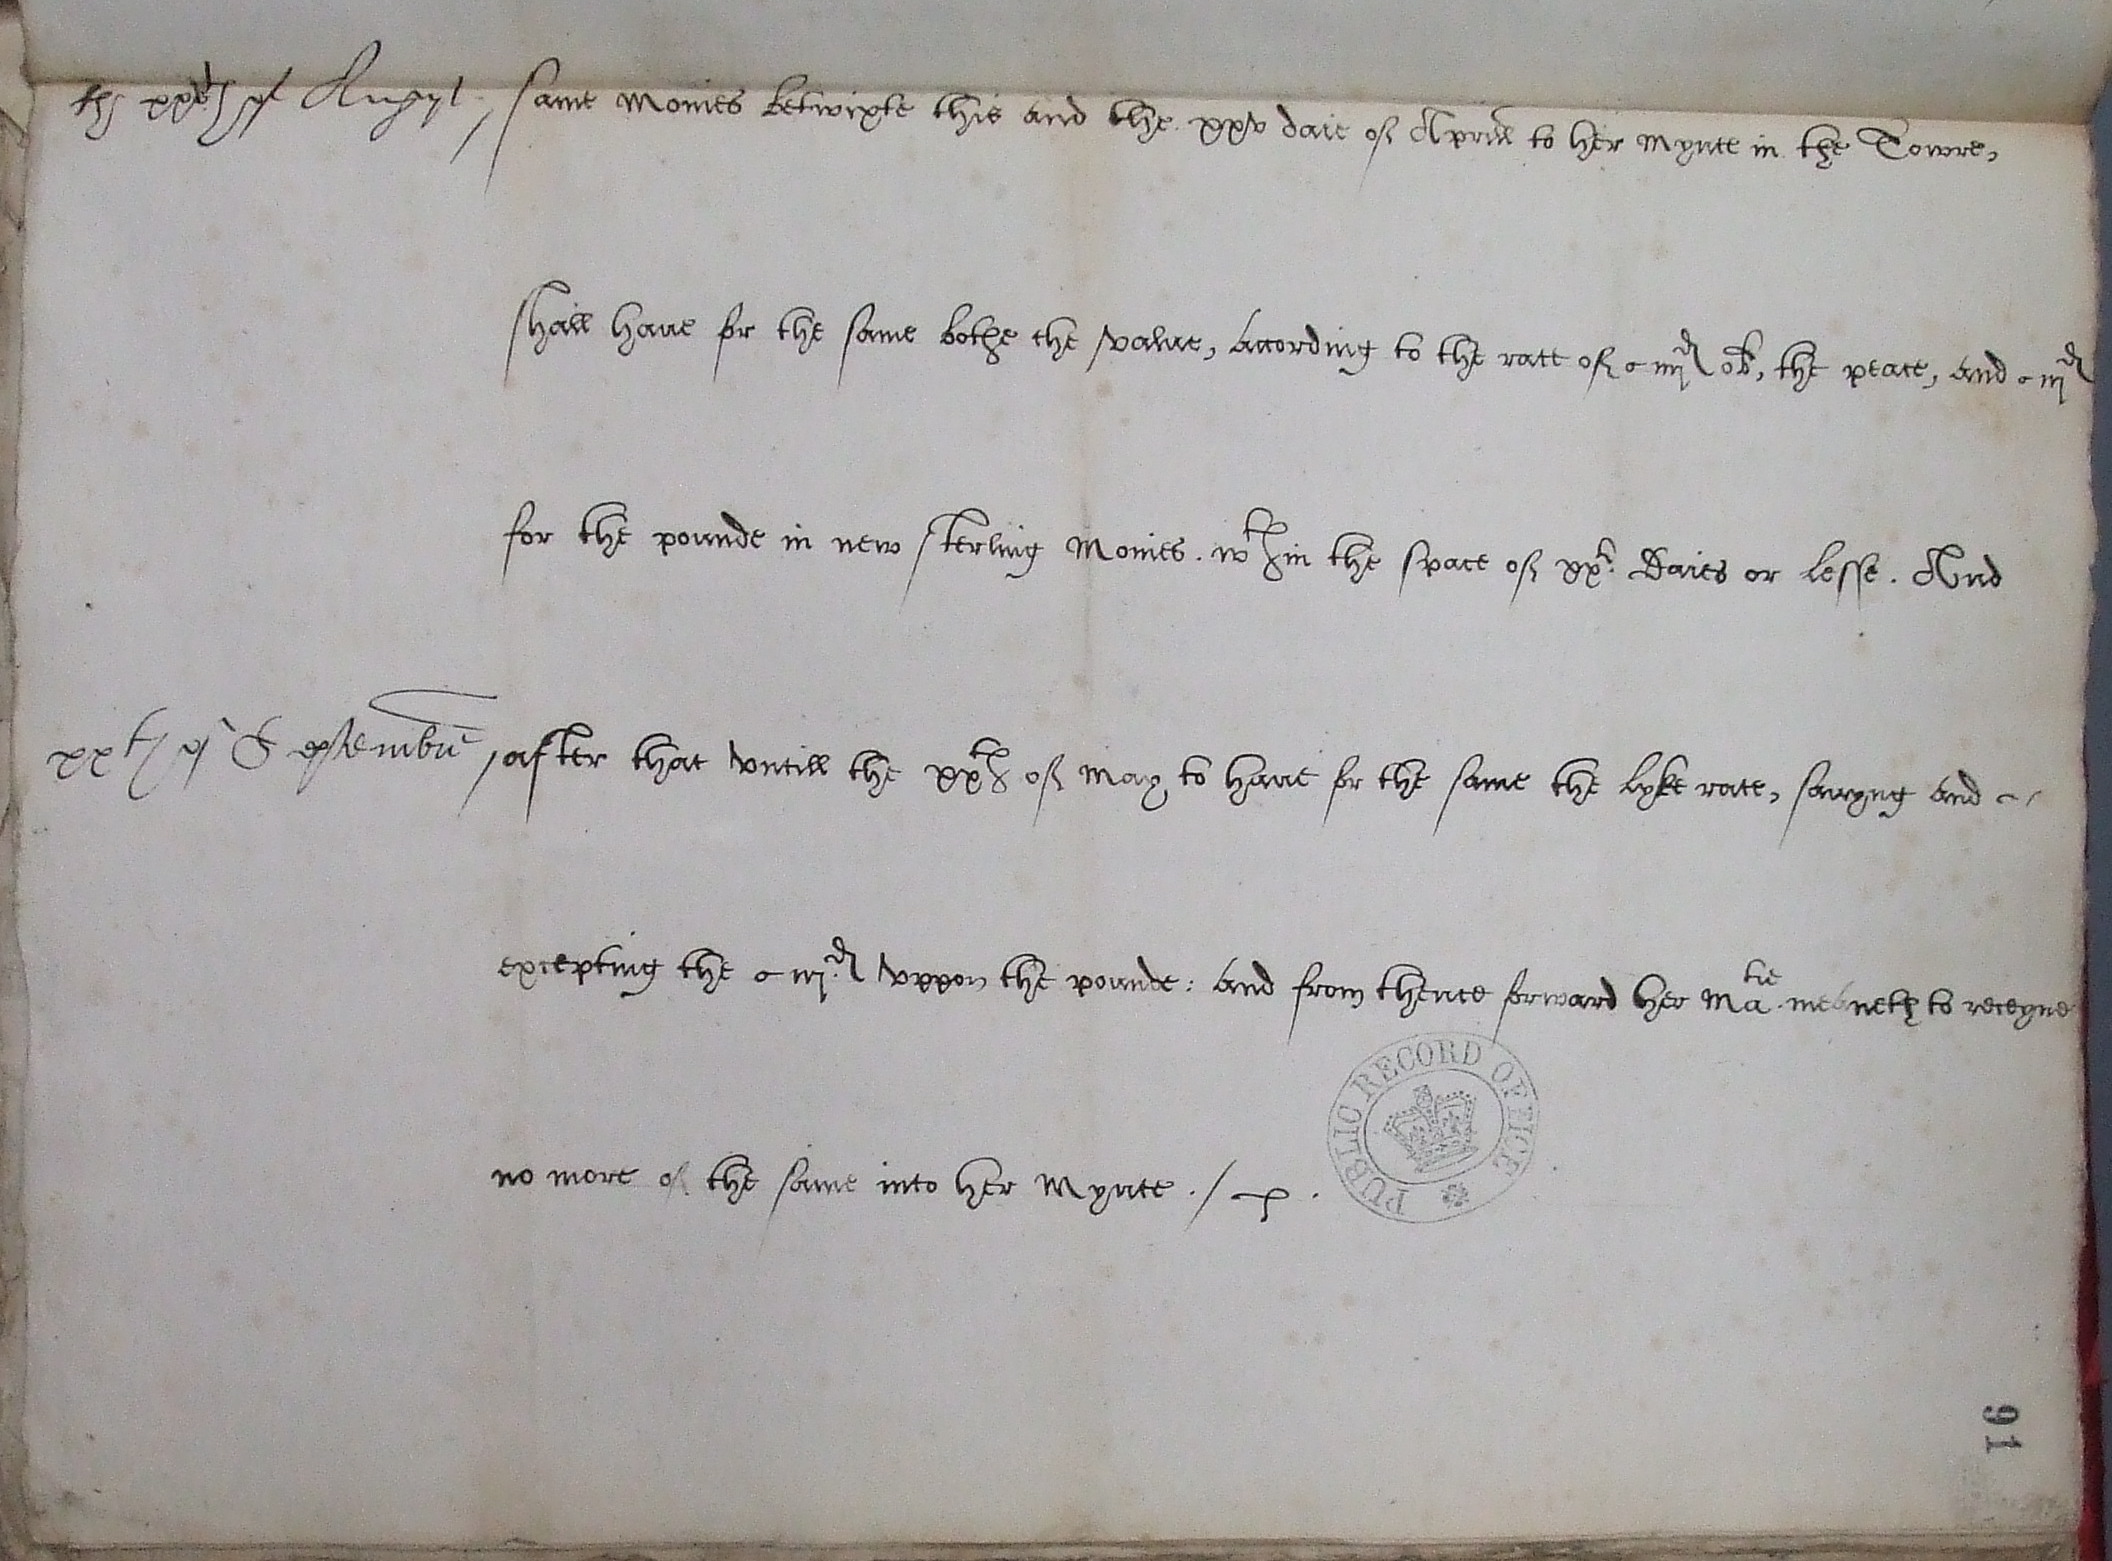 the xxth of August same Monies betwixte this and the xxv daie of Aprill to her Mynte in the Towre,
shall haue for the same bothe the value, according to the rate of iiijd ob, the peace, and iijd
for the pounde in new sterling Monies. wthin the space of xxti Daies or lesse. And
xxth of Septembre after that vntill the xxth of May to haue for the same the lyke rate, sauyng and
excepting the iijd vppon the pounde: and from thence forward her Matie meaneth to receyue
no more of the same into her Mynte.
PUBLIC RECORD OFFICE
91